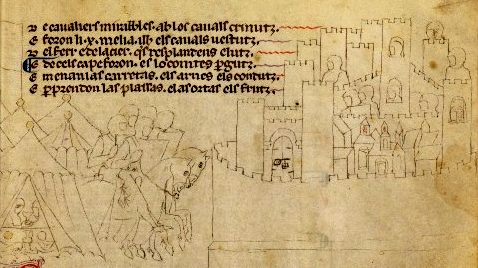 D e cavaliers mirables. ab los cavals crinutz.
E foron li .x. melia. els cavals vestutz.
D el ferr e de lacier. q̃s resplandens e lutz.
E de cels cape foron. es lo comtes
E menan las carretas. els arnes els condutz.
E ꝑprendon las plassas. e las ortas els frutz.